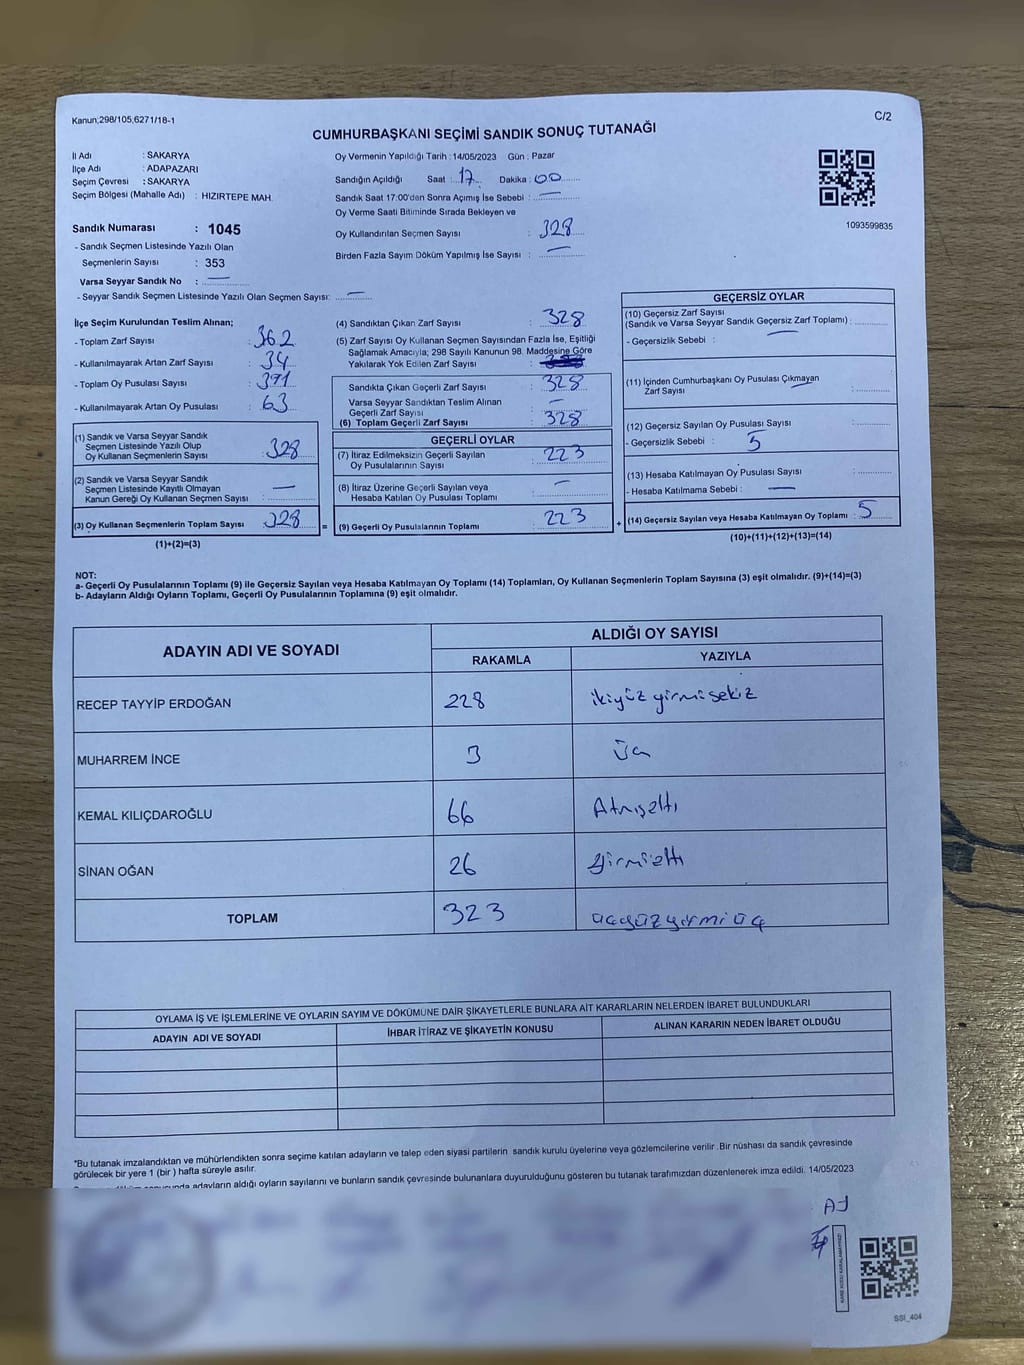 Kanun;298/105,6271/18-1
C/2
CUMHURBAŞKANI SEÇİMİ SANDIK SONUÇ TUTANAĞI
İl Adı : SAKARYA
İlçe Adı : ADAPAZARI
Seçim Çevresi : SAKARYA
Seçim Bölgesi (Mahalle Adı) : HIZIRTEPE MAH.
Sandık Numarası : 1045
- Sandık Seçmen Listesinde Yazılı Olan
Seçmenlerin Sayısı : 353
Varsa Seyyar Sandık No : —
- Seyyar Sandık Seçmen Listesinde Yazılı Olan Seçmen Sayısı: —
Oy Vermenin Yapıldığı Tarih : 14/05/2023 Gün : Pazar
Sandığın Açıldığı Saat : 17 Dakika : 00
Sandık Saat 17:00'den Sonra Açımış İse Sebebi : —
Oy Verme Saati Bitiminde Sırada Bekleyen ve
Oy Kullandırılan Seçmen Sayısı : 328
Birden Fazla Sayım Döküm Yapılmış İse Sayısı : —
1093599835
İlçe Seçim Kurulundan Teslim Alınan;
- Toplam Zarf Sayısı : 362
- Kullanılmayarak Artan Zarf Sayısı : 34
- Toplam Oy Pusulası Sayısı : 391
- Kullanılmayarak Artan Oy Pusulası : 63
(1) Sandık ve Varsa Seyyar Sandık
Seçmen Listesinde Yazılı Olup
Oy Kullanan Seçmenlerin Sayısı : 328
(2) Sandık ve Varsa Seyyar Sandık
Seçmen Listesinde Kayıtlı Olmayan
Kanun Gereği Oy Kullanan Seçmen Sayısı : —
(3) Oy Kullanan Seçmenlerin Toplam Sayısı : 328 =
(1)+(2)=(3)
(4) Sandıktan Çıkan Zarf Sayısı : 328
(5) Zarf Sayısı Oy Kullanan Seçmen Sayısından Fazla İse, Eşitliği
Sağlamak Amacıyla; 298 Sayılı Kanunun 98. Maddesine Göre
Yakılarak Yok Edilen Zarf Sayısı :
Sandıkta Çıkan Geçerli Zarf Sayısı : 328
Varsa Seyyar Sandıktan Teslim Alınan
Geçerli Zarf Sayısı : —
(6) Toplam Geçerli Zarf Sayısı : 328
GEÇERLİ OYLAR
(7) İtiraz Edilmeksizin Geçerli Sayılan
Oy Pusulalarının Sayısı : 223
(8) İtiraz Üzerine Geçerli Sayılan veya
Hesaba Katılan Oy Pusulası Toplamı : —
(9) Geçerli Oy Pusulalarının Toplamı : 223 +
GEÇERSİZ OYLAR
(10) Geçersiz Zarf Sayısı
(Sandık ve Varsa Seyyar Sandık Geçersiz Zarf Toplamı) :
- Geçersizlik Sebebi : —
(11) İçinden Cumhurbaşkanı Oy Pusulası Çıkmayan
Zarf Sayısı :
(12) Geçersiz Sayılan Oy Pusulası Sayısı :
- Geçersizlik Sebebi : 5
(13) Hesaba Katılmayan Oy Pusulası Sayısı :
- Hesaba Katılmama Sebebi : —
(14) Geçersiz Sayılan veya Hesaba Katılmayan Oy Toplamı : 5
(10)+(11)+(12)+(13)=(14)
NOT:
a- Geçerli Oy Pusulalarının Toplamı (9) ile Geçersiz Sayılan veya Hesaba Katılmayan Oy Toplamı (14) Toplamları, Oy Kullanan Seçmenlerin Toplam Sayısına (3) eşit olmalıdır. (9)+(14)=(3)
b- Adayların Aldığı Oyların Toplamı, Geçerli Oy Pusulalarının Toplamına (9) eşit olmalıdır.
ADAYIN ADI VE SOYADI
ALDIĞI OY SAYISI
RAKAMLA YAZIYLA
RECEP TAYYİP ERDOĞAN 228 ikiyüz yirmi sekiz
MUHARREM İNCE 3 üç
KEMAL KILIÇDAROĞLU 66 Atmışaltı
SİNAN OĞAN 26 yirmialtı
TOPLAM 323 üçyüz yirmi üç
OYLAMA İŞ VE İŞLEMLERİNE VE OYLARIN SAYIM VE DÖKÜMÜNE DAİR ŞİKAYETLERLE BUNLARA AİT KARARLARIN NELERDEN İBARET BULUNDUKLARI
ADAYIN ADI VE SOYADI İHBAR İTİRAZ VE ŞİKAYETİN KONUSU ALINAN KARARIN NEDEN İBARET OLDUĞU
*Bu tutanak imzalandıktan ve mühürlendikten sonra seçime katılan adayların ve talep eden siyasi partilerin sandık kurulu üyelerine veya gözlemcilerine verilir. Bir nüshası da sandık çevresinde
görülecek bir yere 1 (bir ) hafta süreyle asılır.
adayların aldığı oyların sayılarını ve bunların sandık çevresinde bulunanlara duyurulduğunu gösteren bu tutanak tarafımızdan düzenlenerek imza edildi. 14/05/2023
KARE KODU KARALAMAYINIZ!
SSI_404